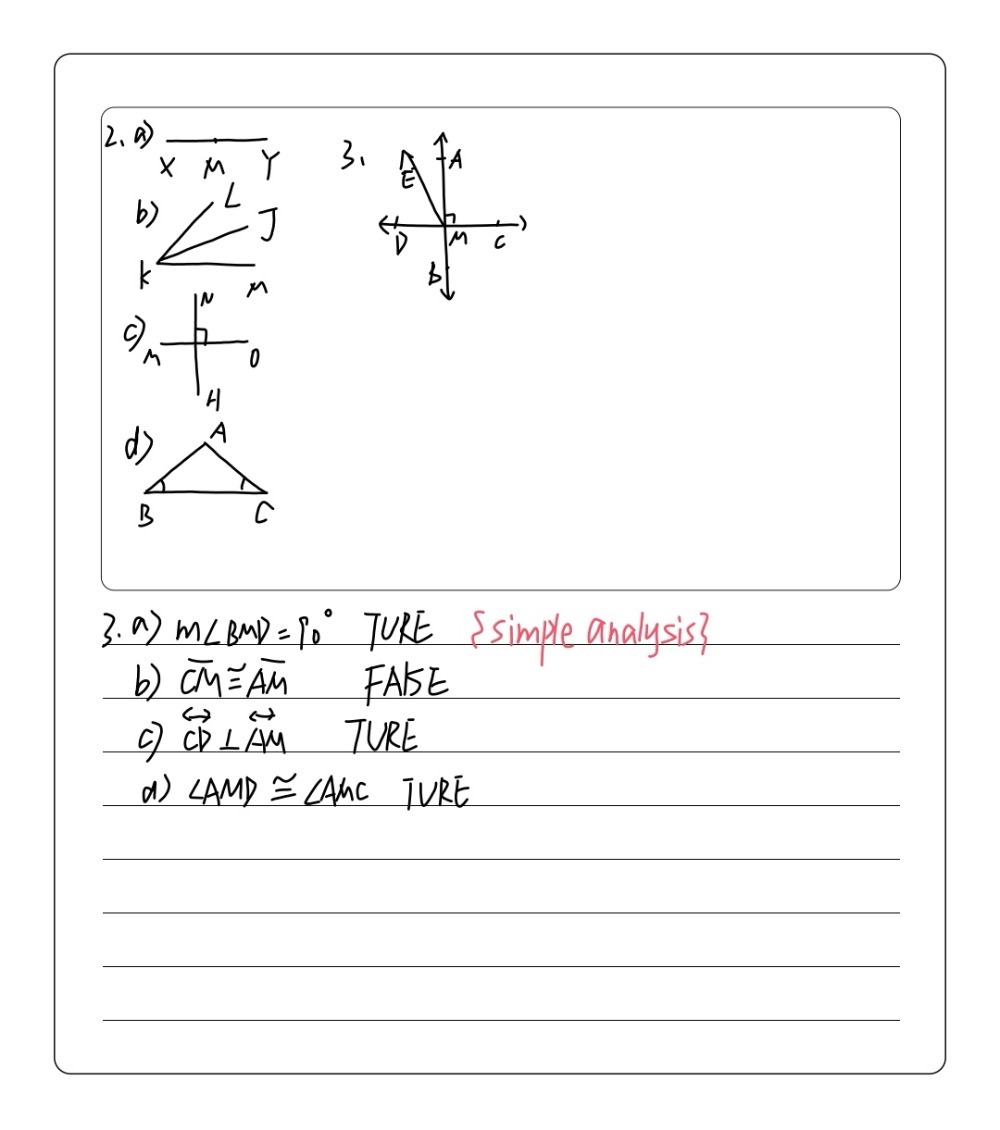 2. a)
X M Y
b) L
J
K
M
c) N
M O
H
d) A
B C
3.
A
E
D M C
B
3. a) m∠BMD = 90° TURE {simple analysis}
b) C̅M̅ ≅ A̅M̅ FALSE
c) CD ⊥ AM TURE
d) ∠AMD ≅ ∠AMC TURE